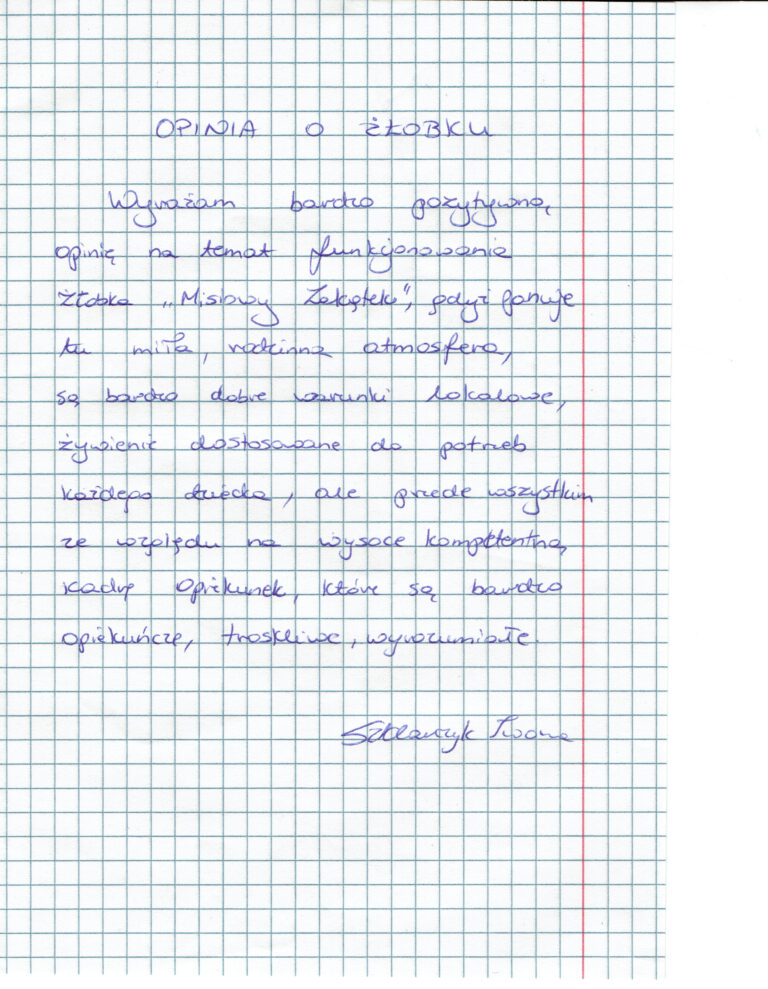 OPINIA O ŻŁOBKU
Wyrażam bardzo pozytywną
opinię na temat funkcjonowania
żłobka „Misiowy Zakątek", gdyż panuje
tu miła, rodzinna atmosfera,
są bardzo dobre warunki lokalowe,
żywienie dostosowane do potrzeb
każdego dziecka, ale przede wszystkim
ze względu na wysoce kompetentną
kadrę opiekunek, które są bardzo
opiekuńcze, troskliwe, wyrozumiałe.
Iwona